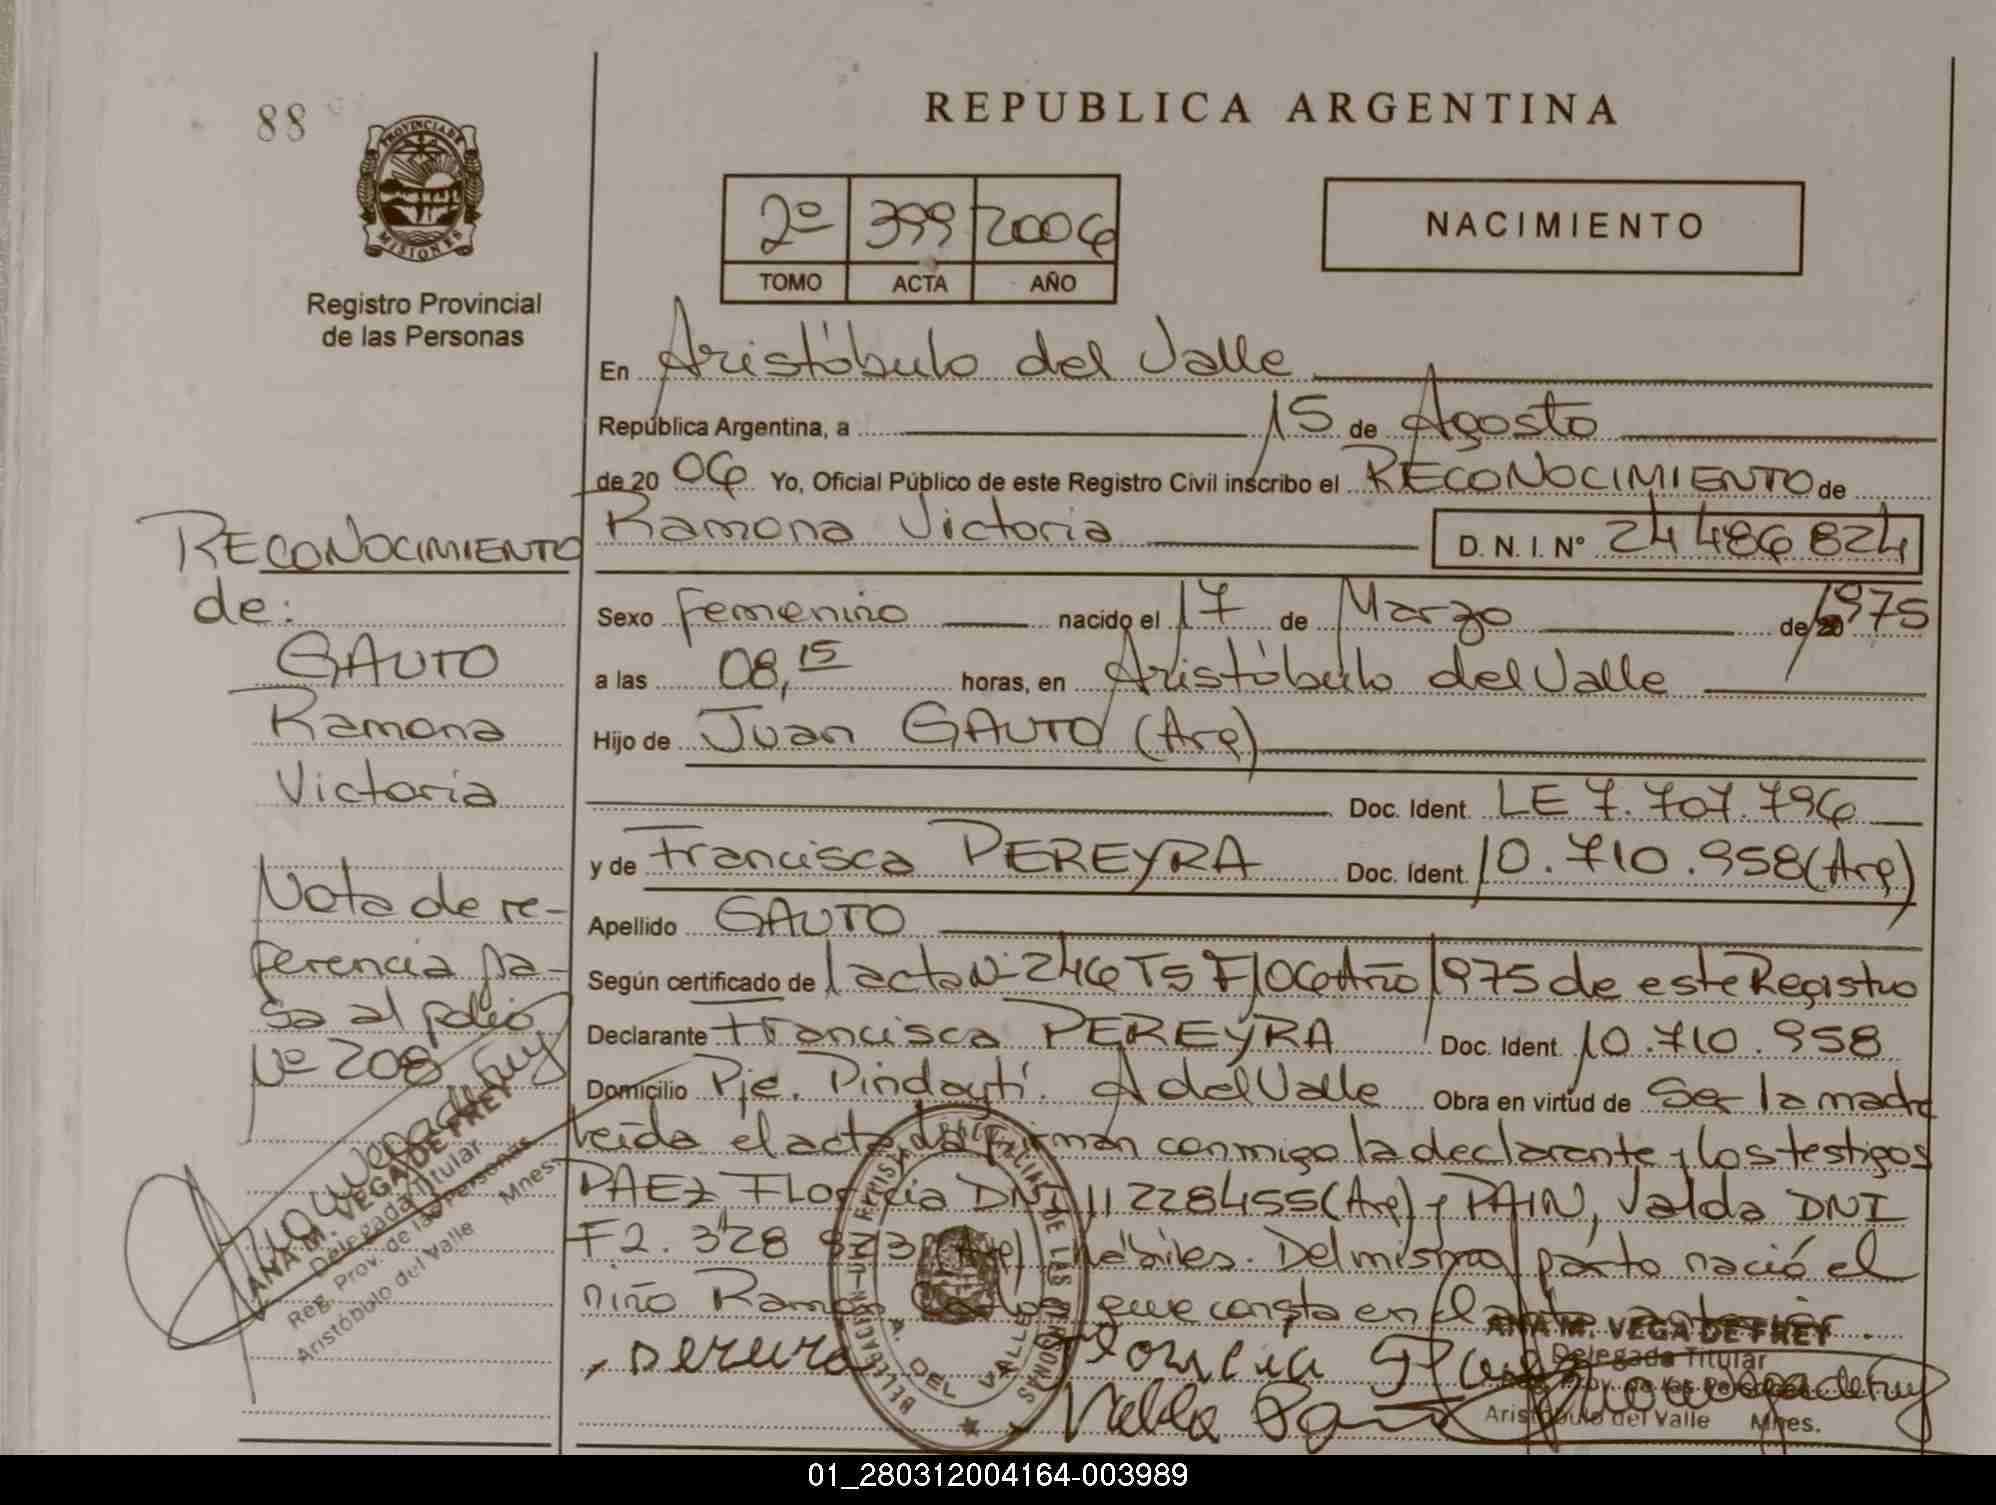 88
PROVINCIA DE
MISIONES
Registro Provincial
de las Personas
REPUBLICA ARGENTINA
2º 399 2006
TOMO ACTA AÑO
NACIMIENTO
En Aristóbulo del Valle
República Argentina, a 15 de Agosto
de 20 06 Yo, Oficial Público de este Registro Civil inscribo el RECONOCIMIENTO de
Ramona Victoria D. N. I. Nº 24 486 824
Sexo femenino nacido el 17 de Marzo de 1975
a las 08,15 horas, en Aristóbulo del Valle
Hijo de Juan GAUTO (Arg)
Doc. Ident. LE 7.707.796
y de Francisca PEREYRA Doc. Ident. 10.710.958 (Arg)
Apellido GAUTO
Según certificado de l acta Nº 246 T5 F/06 Año 1975 de este Registro
Declarante Francisca PEREYRA Doc. Ident. 10.710.958
Domicilio Pje. Pindaytí. A del Valle Obra en virtud de Ser la madre
leída el acta la firman conmigo la declarante y los testigos
PAEZ Florencia DNI 11 228455 (Arg) y PAIN, Valda DNI
F2. 328 (Arg) hábiles. Del mismo parto nació el
niño Ramón Carlos que consta en el acta anterior.
RECONOCIMIENTO
de:
GAUTO
Ramona
Victoria
Nota de re-
ferencia pa-
sa al folio
Nº 208
ANA M. VEGA DE FREY
Delegada Titular
Reg. Prov. de las Personas
Aristóbulo del Valle Mnes.
ANA M. VEGA DE FREY
Delegada Titular
Reg. Prov. de las Personas
Aristóbulo del Valle Mnes.
01_280312004164-003989